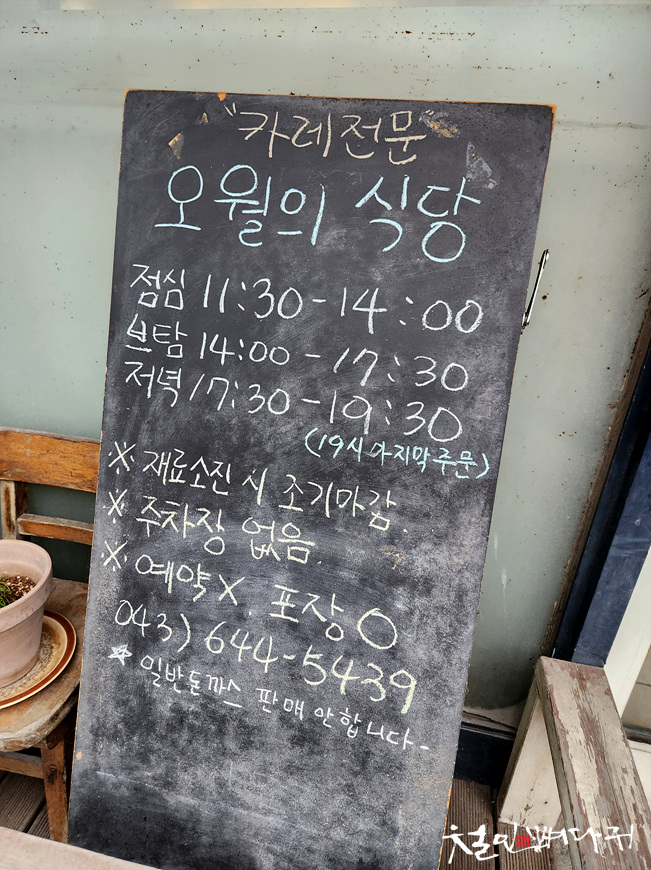 "카레전문"
오월의 식당
점심 11:30-14:00
브탐 14:00-17:30
저녁 17:30-19:30
(19시 마지막 주문)
※ 재료소진 시 조기마감.
※ 주차장 없음.
※ 예약X 포장O
043) 644-5439
☆ 일반돈까스 판매 안합니다-